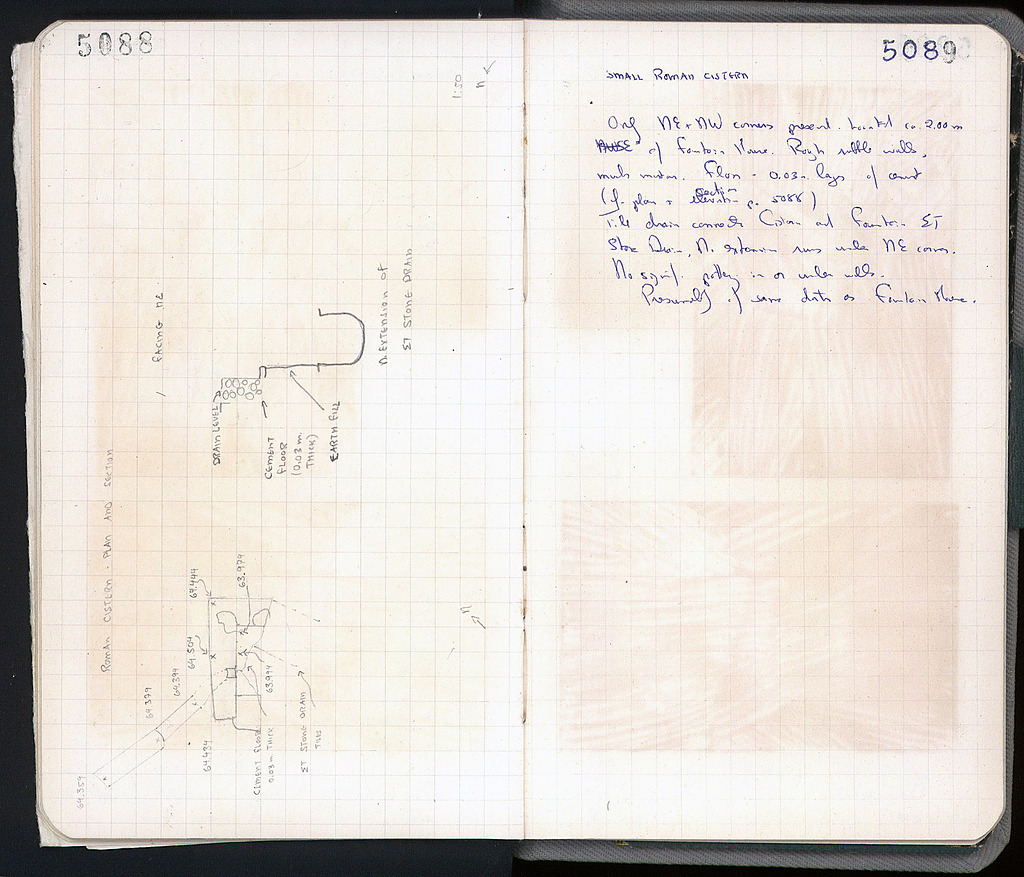 5088
1:50
n
FACING NE
N. EXTENSION OF
ΣΤ STONE DRAIN
DRAIN LEVEL
CEMENT
FLOOR
(0.03 m.
THICK)
EARTH FILL
ROMAN CISTERN - PLAN AND SECTION
n
64.444
63.974
64.504
64.394
63.994
64.379
64.434
64.359
CEMENT FLOOR
0.03 m. THICK
ΣΤ STONE DRAIN
TILES
5089
SMALL ROMAN CISTERN
Only NE + NW corners present. Located ca. 2.00 m
of Fountain House. Rough rubble walls,
much mortar. Floor - 0.03 m. layer of cement
(cf. plan + section p. 5088)
Tile drain connects Cistern and Fountain. ΣΤ
Stone Drain, N. extension runs under NE corner.
No signif. pottery in or under walls.
Presumably of same date as Fountain House.